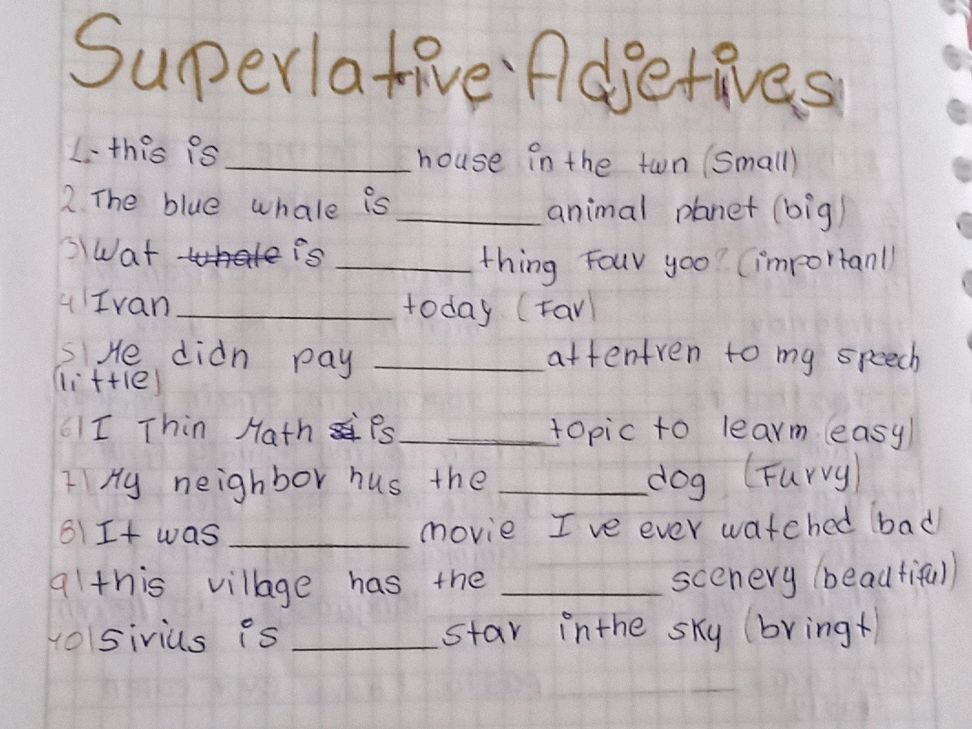 Superlative Adjetives
1.- this is __________ house in the twn (Small)
2. The blue whale is ________ animal planet (big)
3) Wat whale is ________ thing Fouv yoo? (important)
4) Ivan ____________ today (Fav)
5) He didn pay _________ attentren to my speech
(little)
6) I Thin Math si is _________ topic to learm (easy)
7) My neighbor hus the ________ dog (Furvy)
8) It was __________ movie I ve ever watched (bad
9) this village has the _________ scenery (beautiful)
10) Sirius is ________ star inthe sky (bvingt)